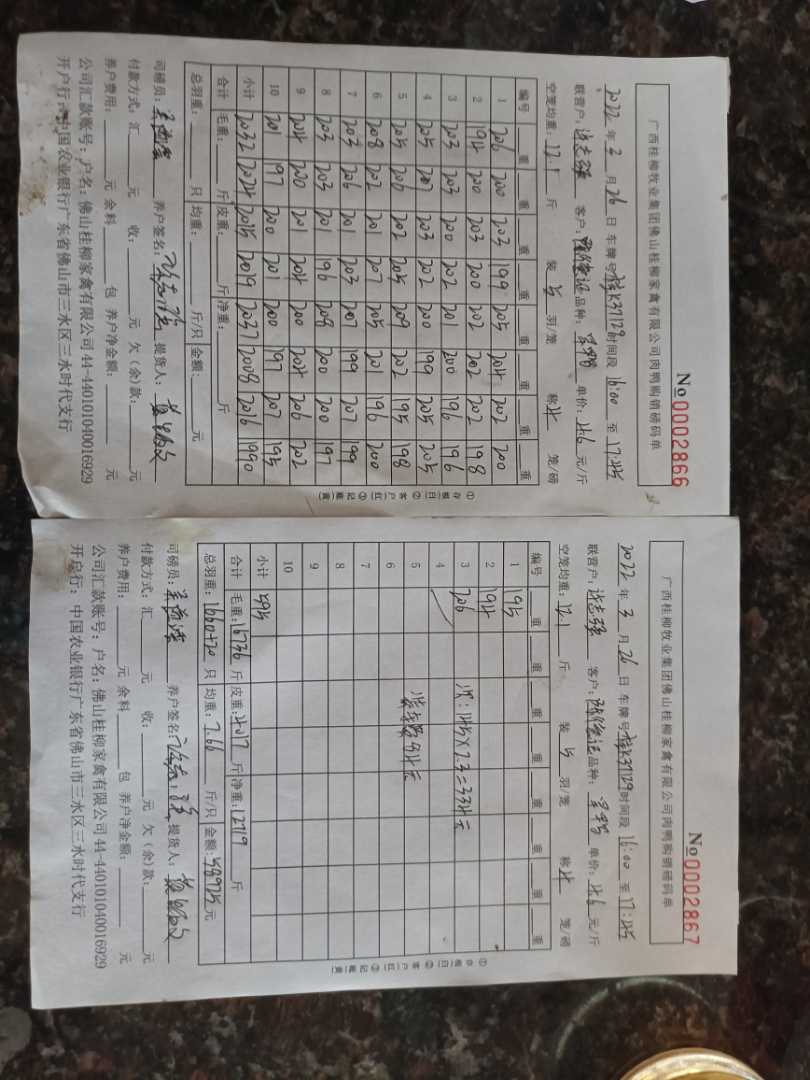 No 0002866
广西桂柳牧业集团佛山桂柳家禽有限公司肉鸭购销磅码单
2022 年 3 月 26 日 车牌号 桂K37129 时间段 16:00 至 17:45
联营户: 客户: 品种: 单价: 4.6 元/斤
空笼均重: 12.1 斤 装 5 羽/笼 称 4 笼/磅
编号 重 重 重 重 重 重 重 重
1 206 200 203 199 205 204 202 200
2 194 200 203 200 202 202 202 198
3 203 203 200 202 201 200 196 196
4 205 207 203 202 200 199 205 205
5 205 206 202 205 209 202 195 198
6 208 202 201 207 205 201 196 200
7 203 206 201 203 207 199 207 199
8 203 203 201 196 208 200 200 197
9 204 200 201 204 200 204 206 202
10 201 197 200 201 200 197 207 195
小计 2032 2024 2015 2019 2037 2008 2016 1990
合计 毛重: 斤 皮重: 斤 净重: 斤
总羽重: 只 均重: 斤/只 金额: 元
①存根(白) ②客户(红) ③记账(黄)
司磅员: 养户签名: 提货人:
付款方式:汇 元 收: 元 欠(余)款: 元
养户费用: 元 余料 包 养户净金额: 元
公司汇款账号:户名:佛山桂柳家禽有限公司 44-440101040016929
开户行:中国农业银行广东省佛山市三水区三水时代支行
No 0002867
广西桂柳牧业集团佛山桂柳家禽有限公司肉鸭购销磅码单
2022 年 3 月 26 日 车牌号 桂K37129 时间段 16:00 至 17:45
联营户: 客户: 品种: 单价: 4.6 元/斤
空笼均重: 12.1 斤 装 5 羽/笼 称 4 笼/磅
编号 重 重 重 重 重 重 重 重
1 195
2 194
3 206 145×2.3=334元
4
5 84元
6
7
8
9
10
小计 595
合计 毛重: 16736 斤 皮重: 4017 斤 净重: 12719 斤
总羽重: 1660+20 只 均重: 7.66 斤/只 金额: 58925 元
①存根(白) ②客户(红) ③记账(黄)
司磅员: 养户签名: 提货人:
付款方式:汇 元 收: 元 欠(余)款: 元
养户费用: 元 余料 包 养户净金额: 元
公司汇款账号:户名:佛山桂柳家禽有限公司 44-440101040016929
开户行:中国农业银行广东省佛山市三水区三水时代支行